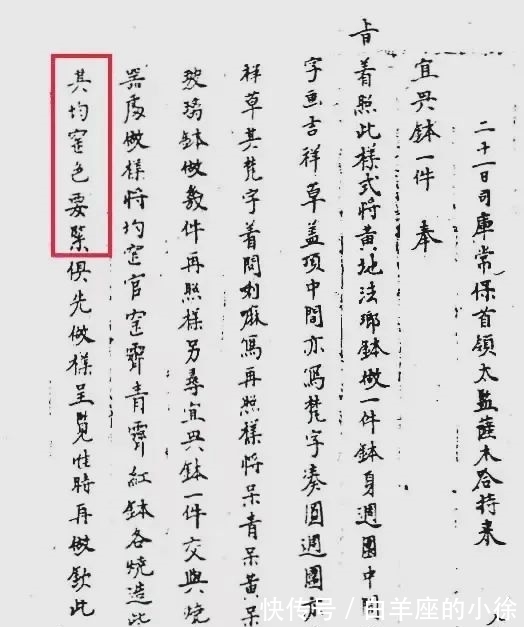 二十一日司庫常保首領太監薩木哈持来
宜興鉢一件 奉
旨着照此樣式将黄地法瑯鉢做一件鉢身週圍中
字畫吉祥草蓋頂中間亦寫梵字湊圓週圍
祥草其梵字着問喇嘛寫再照樣将呆青呆黄呆
玻璃鉢做數件再照樣另尋宜興鉢一件交與燒
器處做樣将均窑官窑霽青霽紅鉢各燒造
其均窑色要緊俱先做樣呈覽准時再做欽此
快传号/白羊座的小徐